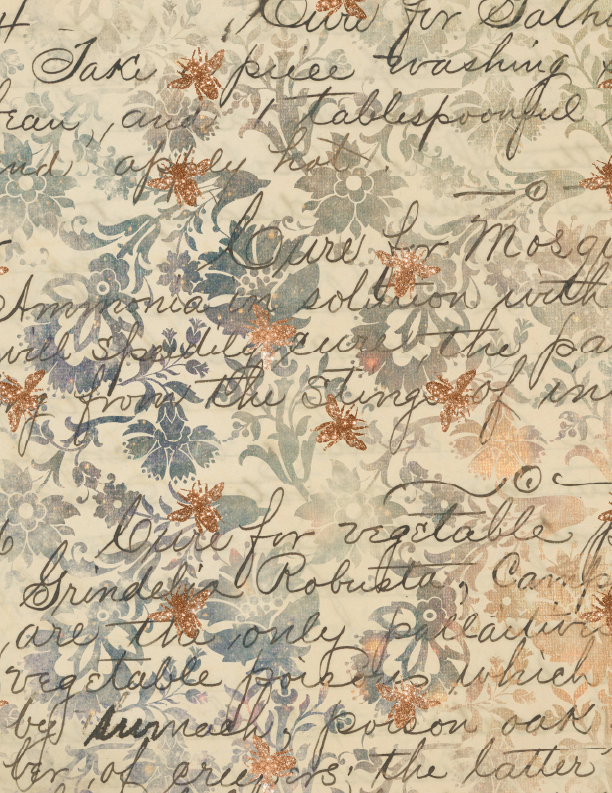 4 - Cure for Sath
Take piece washing
and 1 tablespoonful
and apply hot.
Cure for Mosq
Ammonia in solution with
will speedily cure the pa
y from the stings of in
6 Cure for vegetable p
Grindelia Robusta, Camp
are the only palliativ
vegetable poisons which
by sumach, poison oak
ber of creepers, the latter